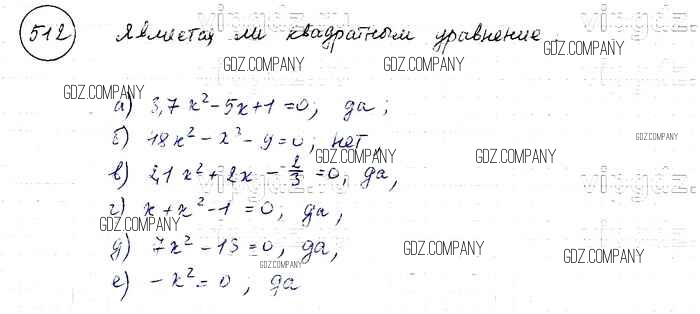 512 Является ли квадратным уравнение
vipgdz.ru
GDZ.COMPANY
GDZ.COMPANY
GDZ.COMPANY
а) 3,7x² - 5x + 1 = 0; да;
GDZ.COMPANY
б) 48x² - x³ - 9 = 0; нет,
GDZ.COMPANY
GDZ.COMPANY
GDZ.COMPANY
в) 2,1x² + 2x - 2/3 = 0; да,
vipgdz.ru
г) x + x² - 1 = 0; да,
GDZ.COMPANY
д) 7x² - 13 = 0, да,
GDZ.COMPANY
GDZ.COMPANY
GDZ.COMPANY
е) -x² = 0; да